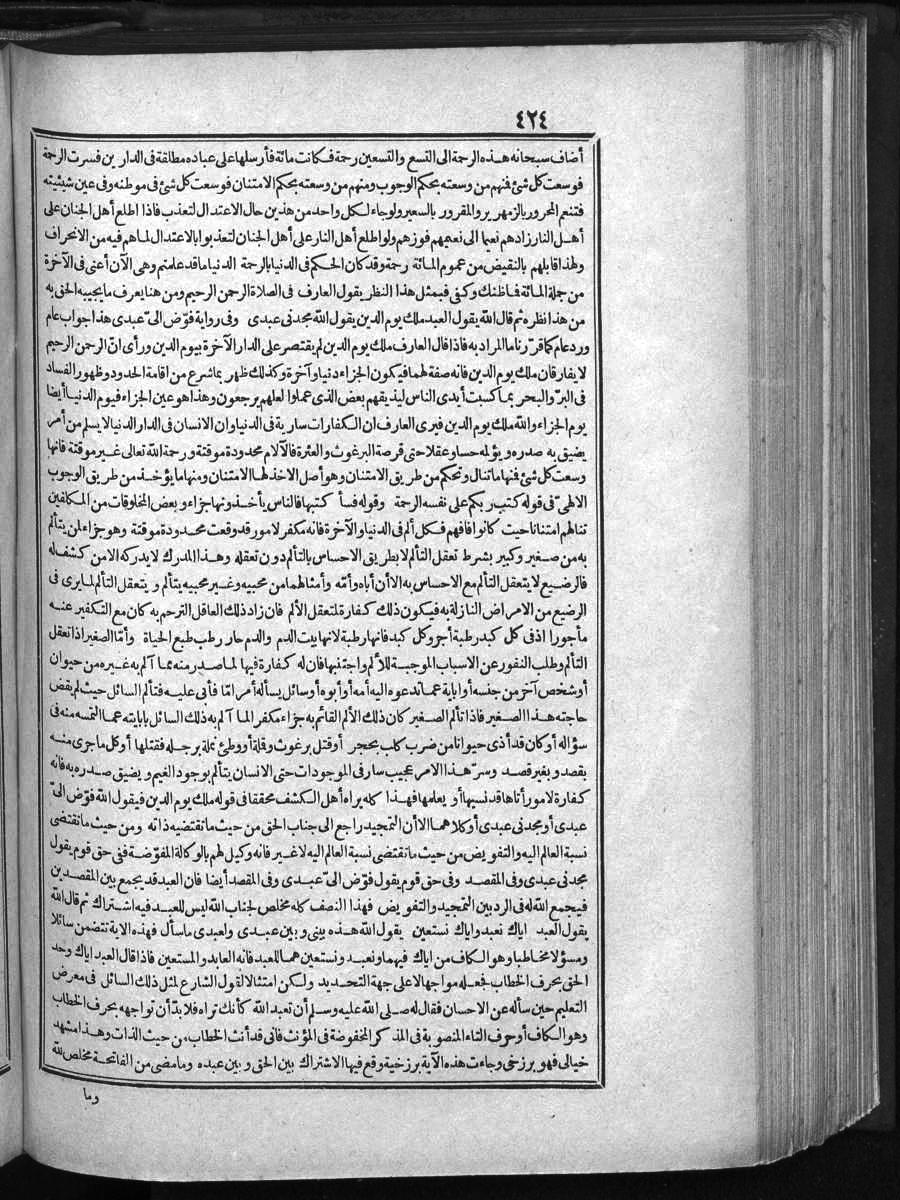 ٤٢٤
أضاف سبحانه هذه الرحمة الى التسع والتسعين رحمة فكانت مائة فأرسلها على عباده مطلقة فى الدارين فسرت الرحمة
فوسعت كل شئ فنهم من وسعته بحكم الوجوب ومنهم من وسعته بحكم الامتنان فوسعت كل شئ فى موطنه وفى عين شيئيته
فتنعم المحرور بالزمهرير والمقرور بالسعير ولو جاء لكل واحد من هذين حال الاعتدال لتعذب فاذا اطلع أهل الجنان على
أهل النار زادهم نعيما الى نعيمهم فوزهم ولو اطلع أهل النار على أهل الجنان لتعذبوا بالاعتدال لما هم فيه من الانحراف
ولهذا قابلهم بالنقيض من عموم المائة رحمة وقد كان الحكم فى الدنيا بالرحمة الدنيا ما قد علمتم وهى الآن أعنى فى الآخرة
من جملة المائة فاظنك وكفى فبمثل هذا النظر يقول العارف فى الصلاة الرحمن الرحيم ومن هنا يعرف ما يجيبه الحق به
من هذا نظره ثم قال الله يقول العبد ملك يوم الدين يقول الله مجدنى عبدى وفى رواية فوّض الىّ عبدى هذا جواب عام
ورد عام كما قرّرنا ما المراد به فاذا قال العارف ملك يوم الدين لم يقتصر على الدار الآخرة بيوم الدين ورأى انّ الرحمن الرحيم
لا يفارقان ملك يوم الدين فانه صفة لهما فيكون الجزاء دنيا وآخرة وكذلك ظهر بما شرع من اقامة الحدود وظهور الفساد
فى البرّ والبحر بما كسبت أيدى الناس ليذيقهم بعض الذى عملوا لعلهم يرجعون وهذا هو عين الجزاء فيوم الدنيا أيضا
يوم الجزاء والله ملك يوم الدين فيرى العارف ان الكفارات سارية فى الدنيا وان الانسان فى الدار الدنيا لا يسلم من أمر
يضيق به صدره ويؤلمه حسا وعقلا حتى قرصة البرغوث والعثرة فالآلام محدودة موقتة ورحمة الله تعالى غير موقتة فانها
وسعت كل شئ فنها ما تنال وتحكم من طريق الامتنان وهو أصل الاخذ لها الامتنان ومنها ما يؤخذ من طريق الوجوب
الالهىّ فى قوله كتب ربكم على نفسه الرحمة وقوله فسأ كتبها فالناس يأخذونها جزاء وبعض المخلوقات من المكلفين
تنالهم امتنانا حيث كانوا فافهم فكل ألم فى الدنيا والآخرة فانه مكفر لامور قد وقعت محدودة موقتة وهو جزاء لمن يتألم
به من صغير وكبير بشرط تعقل التألم لا بطريق الاحساس بالتألم دون تعقله وهذا المدرك لا يدركه الا من كشف له
فالرضيع لا يتعقل التألم مع الاحساس به الا أن أباه وأمّه وأمثالهما من محبيه وغير محبيه يتألم ويتعقل التألم لما يرى فى
الرضيع من الامراض النازلة به فيكون ذلك كفارة لمتعقل الألم فان زاد ذلك العاقل الترحم به كان مع التكفير عنه
مأجورا اذ فى كل كبد رطبة أجر وكل كبد فانها رطبة لانها بيت الدم والدم حار رطب طبع الحياة وأمّا الصغير اذا تعقل
التألم وطلب النفور عن الاسباب الموجبة للألم واجتنبها فان له كفارة فيها لما صدر منه مما آلم به غيره من حيوان
أو شخص آخر من جنسه أو اباية عما تدعوه اليه أمه أو أبوه أو سائل يسأله أمرا مّا فأبى عليه فتألم السائل حيث لم يقض
حاجته هذا الصغير فاذا تألم الصغير كان ذلك الألم القائم به جزاء مكفر الما آلم به ذلك السائل بابايته عما التمسه منه فى
سؤاله أو كان قد أذى حيوانا من ضرب كلب بحجر أو قتل برغوث وقلة أو وطئ نملة برجله فقتلها أو كل ما جرى منه
بقصد وبغير قصد وسرّ هذا الامر عجيب سار فى الموجودات حتى الانسان يتألم بوجود الغيم ويضيق صدره به فانه
كفارة لامور أتاها قد نسيها أو يعلمها فهذا كله يراه أهل الكشف محققا فى قوله ملك يوم الدين فيقول الله فوّض الىّ
عبدى أو مجدنى عبدى أو كلاهما الا أن التمجيد راجع الى جناب الحق من حيث ما تقتضيه ذاته ومن حيث ما تقتضى
نسبة العالم اليه والتفويض من حيث ما تقتضى نسبة العالم اليه لا غير فانه وكيل لهم بالوكالة المفوّضة ففى حق قوم يقول
مجدنى عبدى وفى المقصد وفى حق قوم يقول فوّض الىّ عبدى وفى المقصد أيضا فان العبد قد يجمع بين المقصدين
فيجمع الله له فى الرد بين التمجيد والتفويض فهذا النصف كله مخلص لجناب الله ليس للعبد فيه اشتراك ثم قال الله
يقول العبد اياك نعبد واياك نستعين يقول الله هذه بينى وبين عبدى ولعبدى ما سأل فهذه الاية تتضمن سائلا
ومسؤلا مخاطبا وهو الكاف من اياك فيهما ونعبد ونستعين هما للعبد فانه العابد والمستعين فاذا قال العبد اياك وحد
الحق بحرف الخطاب فجعله مواجها لا على جهة التحديد ولكن امتثالا لقول الشارع لمثل ذلك السائل فى معرض
التعليم حين سأله عن الاحسان فقال له صلى الله عليه وسلم أن تعبد الله كأنك تراه فلا بدّ أن تواجهه بحرف الخطاب
وهو الكاف أو حرف التاء المنصوبة فى المذكر المخفوضة فى المؤنث فانى قد أنث الخطاب من حيث الذات وهذا مشهد
خيالى فهو برزخى وجاءت هذه الآية برزخية وقع فيها الاشتراك بين الحق وبين عبده وما مضى من الفاتحة مخلص لله
وما